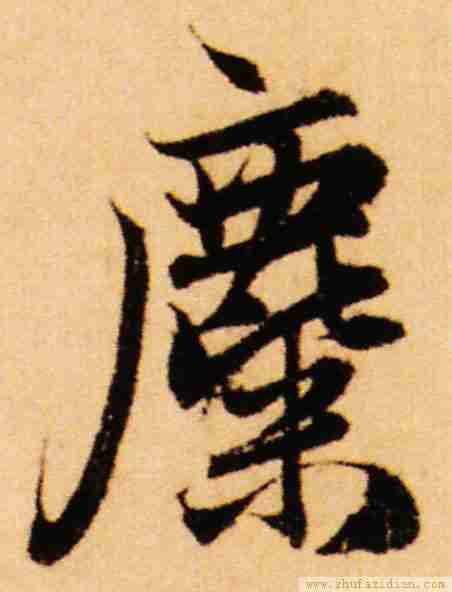 麋
www.zhufazidian.com